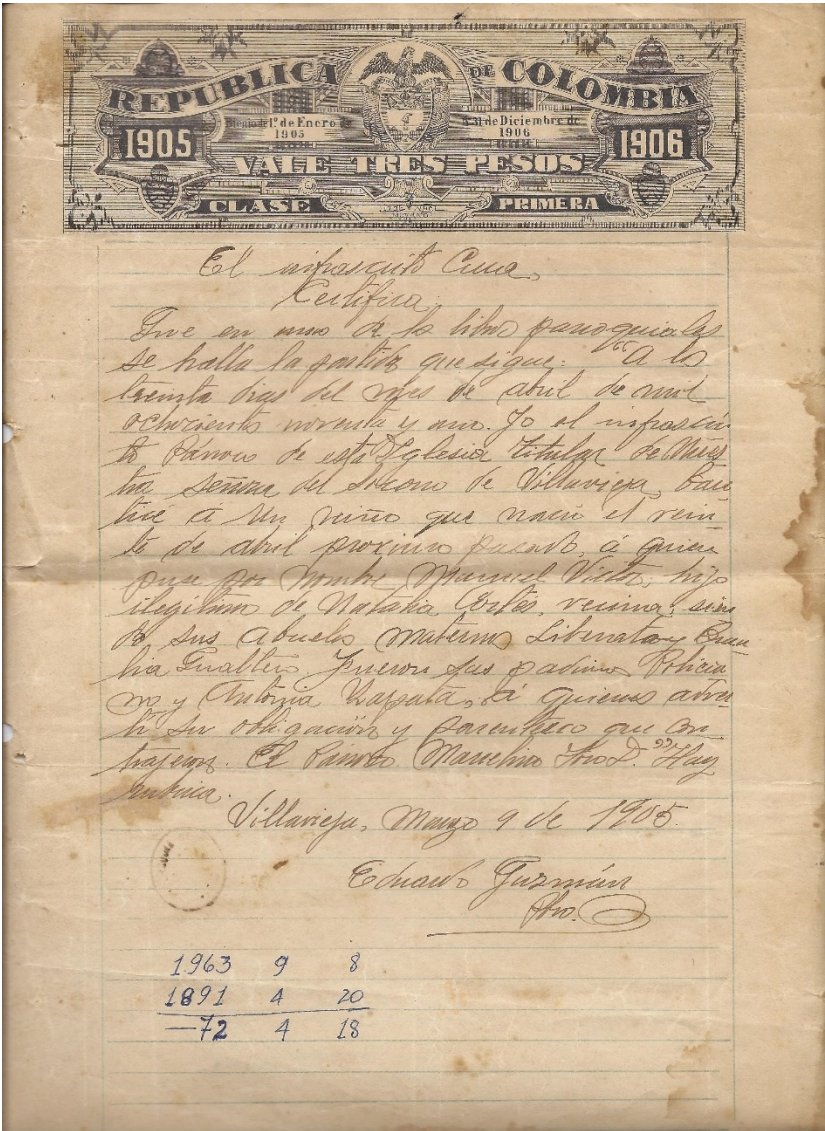 REPUBLICA DE COLOMBIA
1905 Bienio de 1º de Enero de 1905 á 31 de Diciembre de 1906 1906
VALE TRES PESOS
CLASE PRIMERA
El infrascrito Cura,
Certifica:
Que en uno de lo libro parroquiales
se halla la partida que sigue: "A lo
treinta dias del mes de abril de mil
ochociento noventa y uno. Yo el infrascri
to Párroco de esta Yglesia titular de Nues
tra Señora del Socorro de Villavieja, bau
ticé á un niño que nació el vein
te de abril proximo pasado, á quien
puse por nombre Manuel Victor, hijo
ilegitimo de Natalia Cortés, vecina; sien
do sus abuelos maternos Liberato y
Gualtero Fueron sus padrinos Policia
no y Antonia Zapata, á quienes adver
tí su obligación y parentesco que con
trajeron. El Párroco Marcelino D." Hay
rubrica.
Villavieja, Marzo 9 de 1905.
Eduardo Guzmán
Pbro.
1963 9 8
1891 4 20
—72 4 18